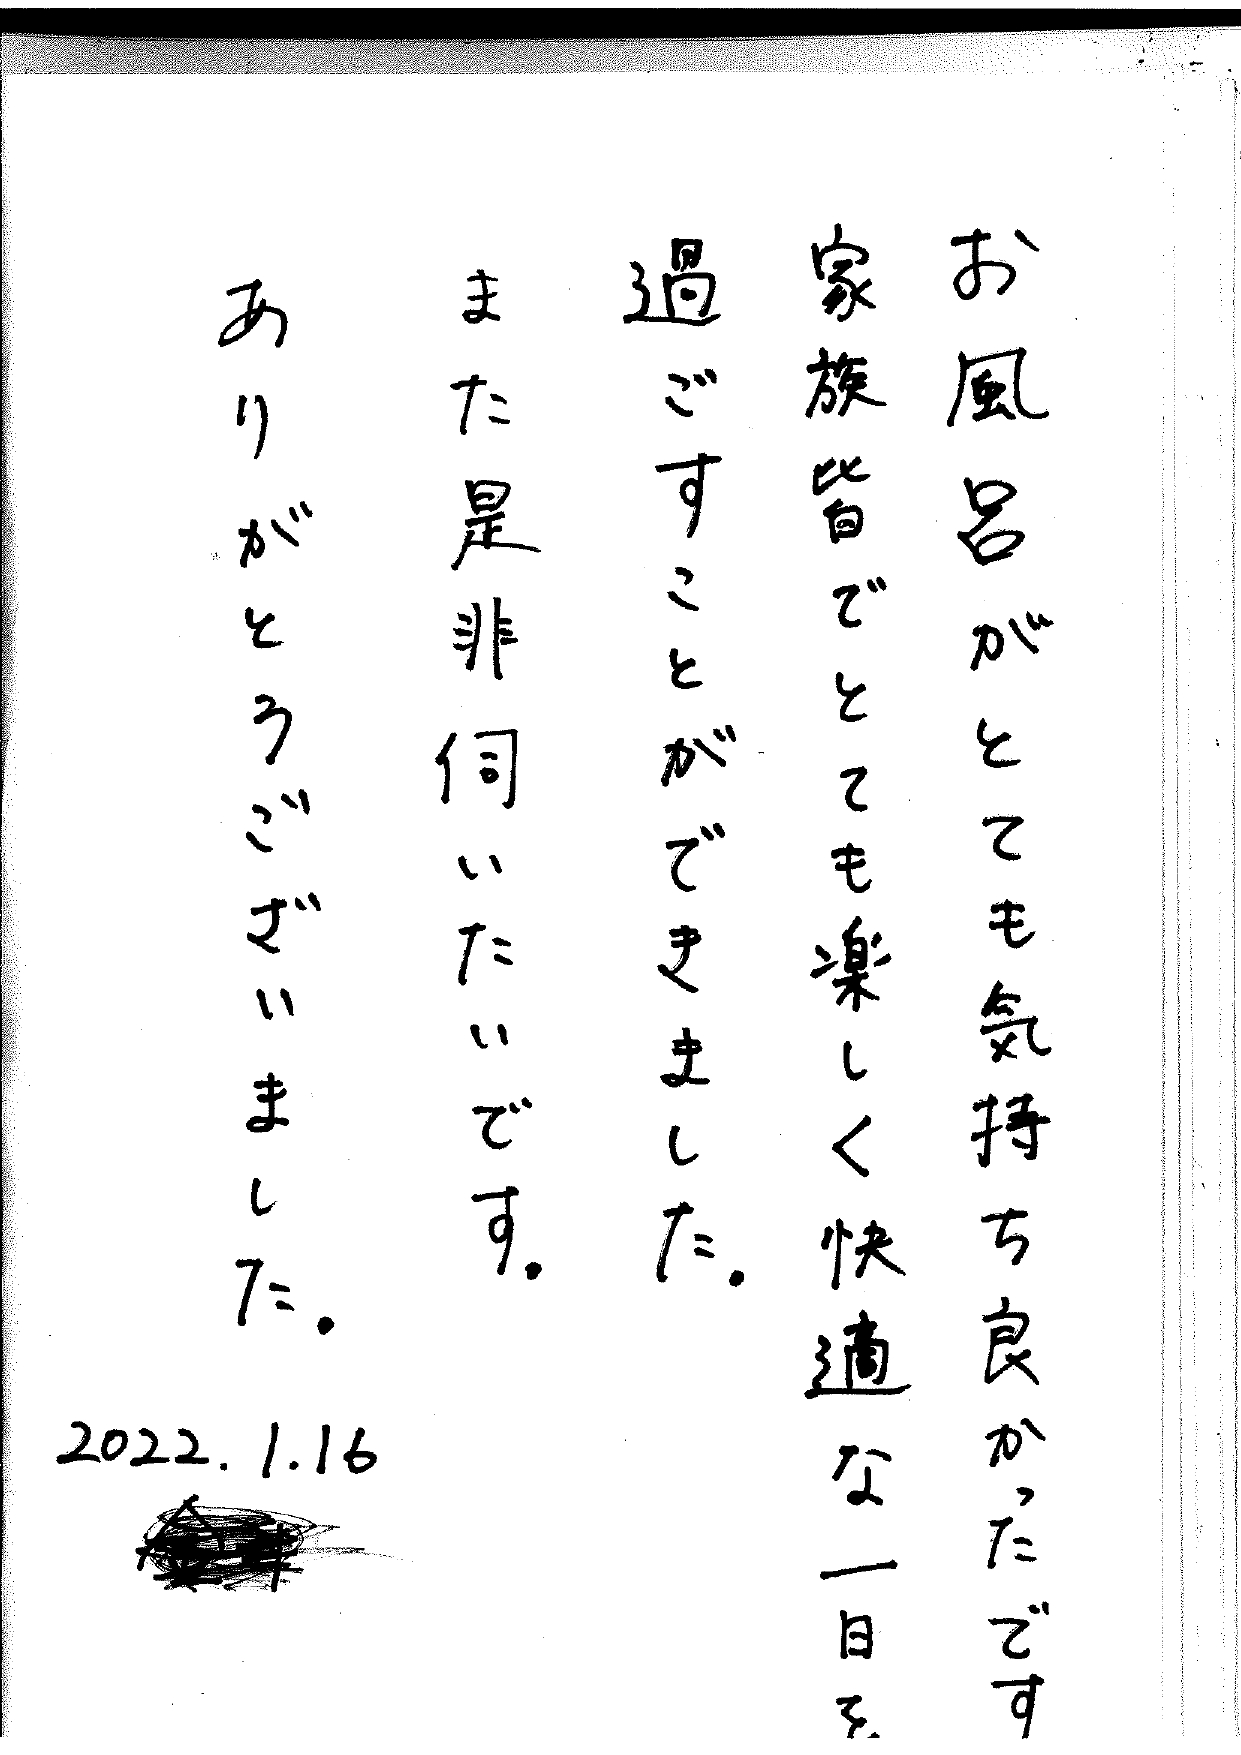 お風呂がとても気持ち良かったです
家族皆でとても楽しく快適な一日を
過ごすことができました.
また是非伺いたいです.
ありがとうございました.
2022.1.16